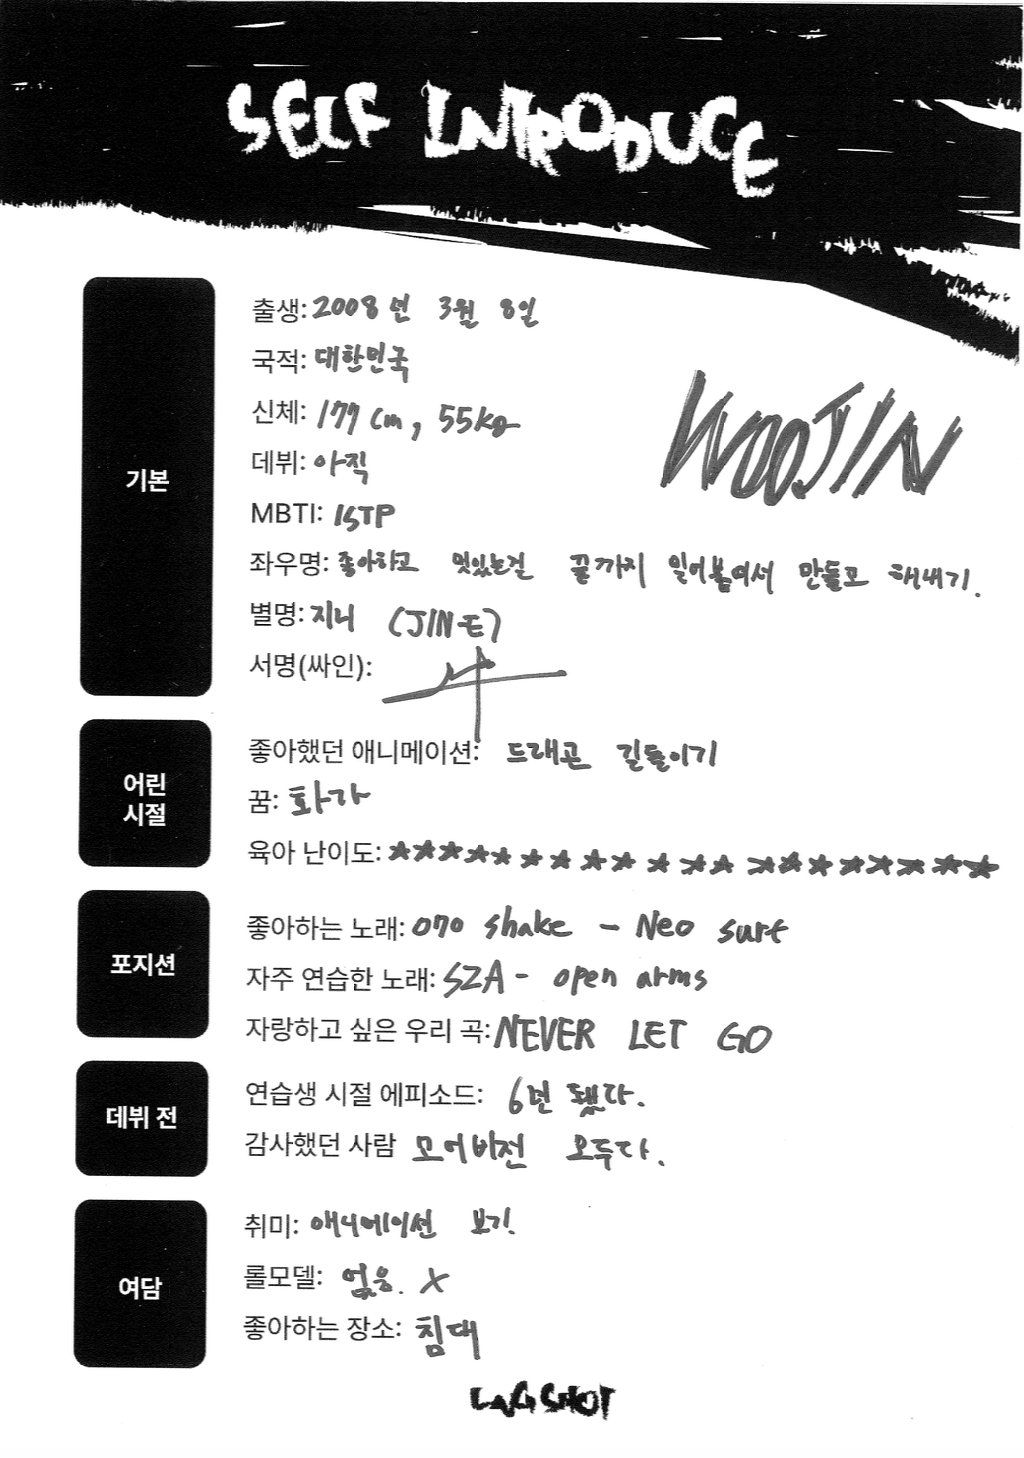 SELF INTRODUCE
기본
출생: 2008년 3월 8일
국적: 대한민국
신체: 177cm, 55kg
데뷔: 아직
MBTI: ISTP
좌우명: 좋아하고 멋있는걸 끝까지 밀어붙여서 만들고 해내기.
별명: 지니 (JIN-E)
서명(싸인):
WOOJIN
어린
시절
좋아했던 애니메이션: 드래곤 길들이기
꿈: 화가
육아 난이도: ★★★★★★★★★★★★★★★★★★★★
포지션
좋아하는 노래: 070 shake - Neo surf
자주 연습한 노래: SZA - open arms
자랑하고 싶은 우리 곡: NEVER LET GO
데뷔 전
연습생 시절 에피소드: 6년 됐다.
감사했던 사람 모어비전 모두다.
여담
취미: 애니메이션 보기.
롤모델: 없음. X
좋아하는 장소: 침대
LNGSHOT